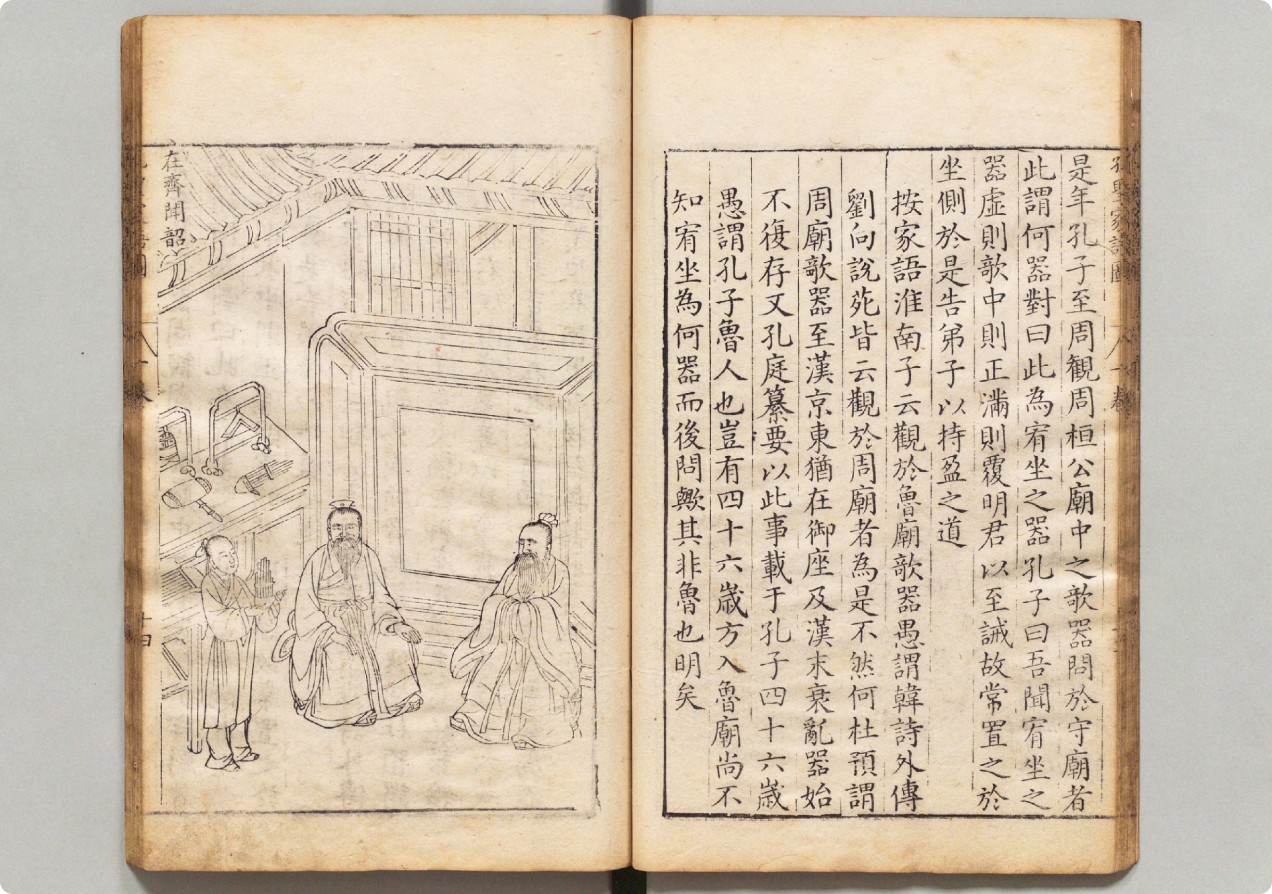 是年孔子至周觀周桓公廟中之欹器問於守廟者
此謂何器對曰此為宥坐之器孔子曰吾聞宥坐之
器虛則欹中則正滿則覆明君以至誡故常置之於
坐側於是告弟子以持盈之道
按家語淮南子云觀於魯廟欹器愚謂韓詩外傳
劉向說苑皆云觀於周廟者為是不然何杜預謂
周廟欹器至漢京東猶在御座及漢末衰亂器始
不復存又孔庭纂要以此事載于孔子四十六歲
愚謂孔子魯人也豈有四十六歲方入魯廟尚不
知宥坐為何器而後問歟其非魯也明矣
在齊聞韶
十四